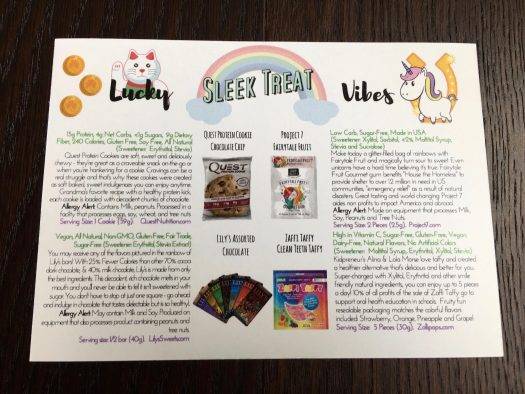 Lucky
SLEEK TREAT
Vibes
15g Protein, 4g Net Carbs, <1g Sugars, 9g Dietary
Fiber, 240 Calories, Gluten Free, Soy Free, All Natural
(Sweetener: Erythritol, Stevia)
Quest Protein Cookies are soft, sweet and deliciously
chewy - they're great as a craveable snack on-the-go or
when you're hankering for a cookie. Cravings can be a
real struggle and that's why these cookies were created
as soft baked, sweet indulgences you can enjoy anytime.
Grandma's favorite recipe with a healthy protein kick,
each cookie is loaded with decadent chunks of chocolate.
Allergy Alert: Contains Milk, peanuts. Processed in a
facility that processes eggs, soy, wheat, and tree nuts
Serving Size: 1 Cookie (59g). QuestNutrition.com
Vegan, All Natural, Non-GMO, Gluten-Free, Fair Trade,
Sugar-Free (Sweetener: Erythritol, Stevia Extract)
You may receive any of the flavors pictured in the rainbow of
Lily's bars! With 25% Fewer Calories than other 70% cocoa
dark chocolate, & 40% milk chocolate, Lily's is made from only
the best ingredients. The decadent, rich chocolate melts in your
mouth and you'll never be able to tell it isn't sweetened with
sugar. You don't have to stop at just one square - go ahead
and indulge in chocolate that tastes delectable but is so healthy!
Allergy Alert: May contain Milk and Soy. Produced on
equipment that also processes product containing peanuts and
tree nuts.
Serving size: 1/2 bar (40g). LilysSweets.com
QUEST PROTEIN COOKIE
CHOCOLATE CHIP
QUEST
PROJECT 7
FAIRYTALE FRUIT
FAIRYTALE FRUIT
LILY'S ASSORTED
CHOCOLATE
ZAFFI TAFFY
CLEAN TEETH TAFFY
Low Carb, Sugar-Free, Made in USA
(Sweetener: Xylitol, Sorbitol, <2% Maltitol Syrup,
Stevia and Sucralose)
Make today a glitter-filled bag of rainbows with
Fairytale Fruit and magically turn sour to sweet! Even
unicorns have a hard time believing its true. Fairytale
Fruit Gourmet gum benefits "House the Homeless" to
provide shelter to over 1.2 million in need in U.S.
communities, "emergency relief" as a result of natural
disasters. Great tasting and world changing: Project 7
sides non profits to impact America and abroad.
Allergy Alert: Made on equipment that processes Milk,
Soy, Peanuts and Tree Nuts.
Serving Size: 2 Pieces (2.5g). Project7.com
High in Vitamin C, Sugar-Free, Gluten-Free, Vegan,
Dairy-Free, Natural Flavors, No Artificial Colors
(Sweetener: Maltitol Syrup, Erythritol, Xylitol, Stevia)
Kidpreneur's Alina & Lola Morse love taffy and created
a healthier alternative that's delicious and better for you.
Super-charged with Xylitol, Erythritol and other smile
friendly natural ingredients, you can enjoy up to 5 pieces
a day! 10% of all profits of the sale of Zaffi Taffy go to
support oral health education in schools. Fruity fun
resealable packaging matches the colorful flavors
included Strawberry, Orange, Pineapple and Grape!
Serving Size: 5 Pieces (30g). Zollipops.com